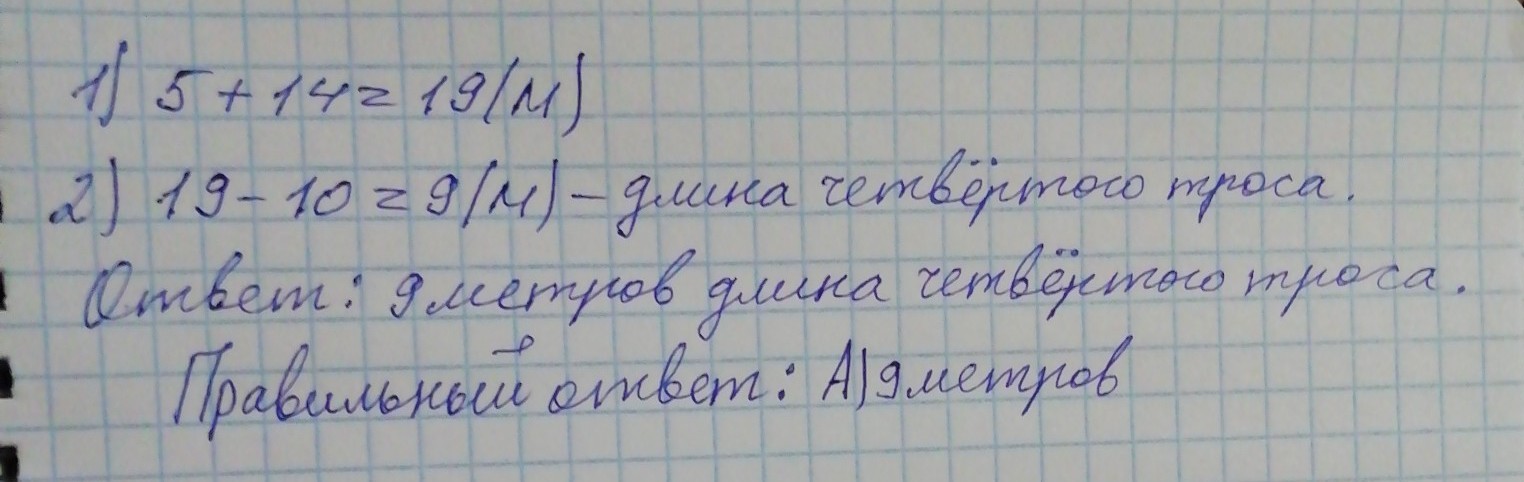 1) 5 + 14 = 19 (м)
2) 19 - 10 = 9 (м) - длина четвёртого троса.
Ответ: 9 метров длина четвёртого троса.
Правильный ответ: А) 9 метров